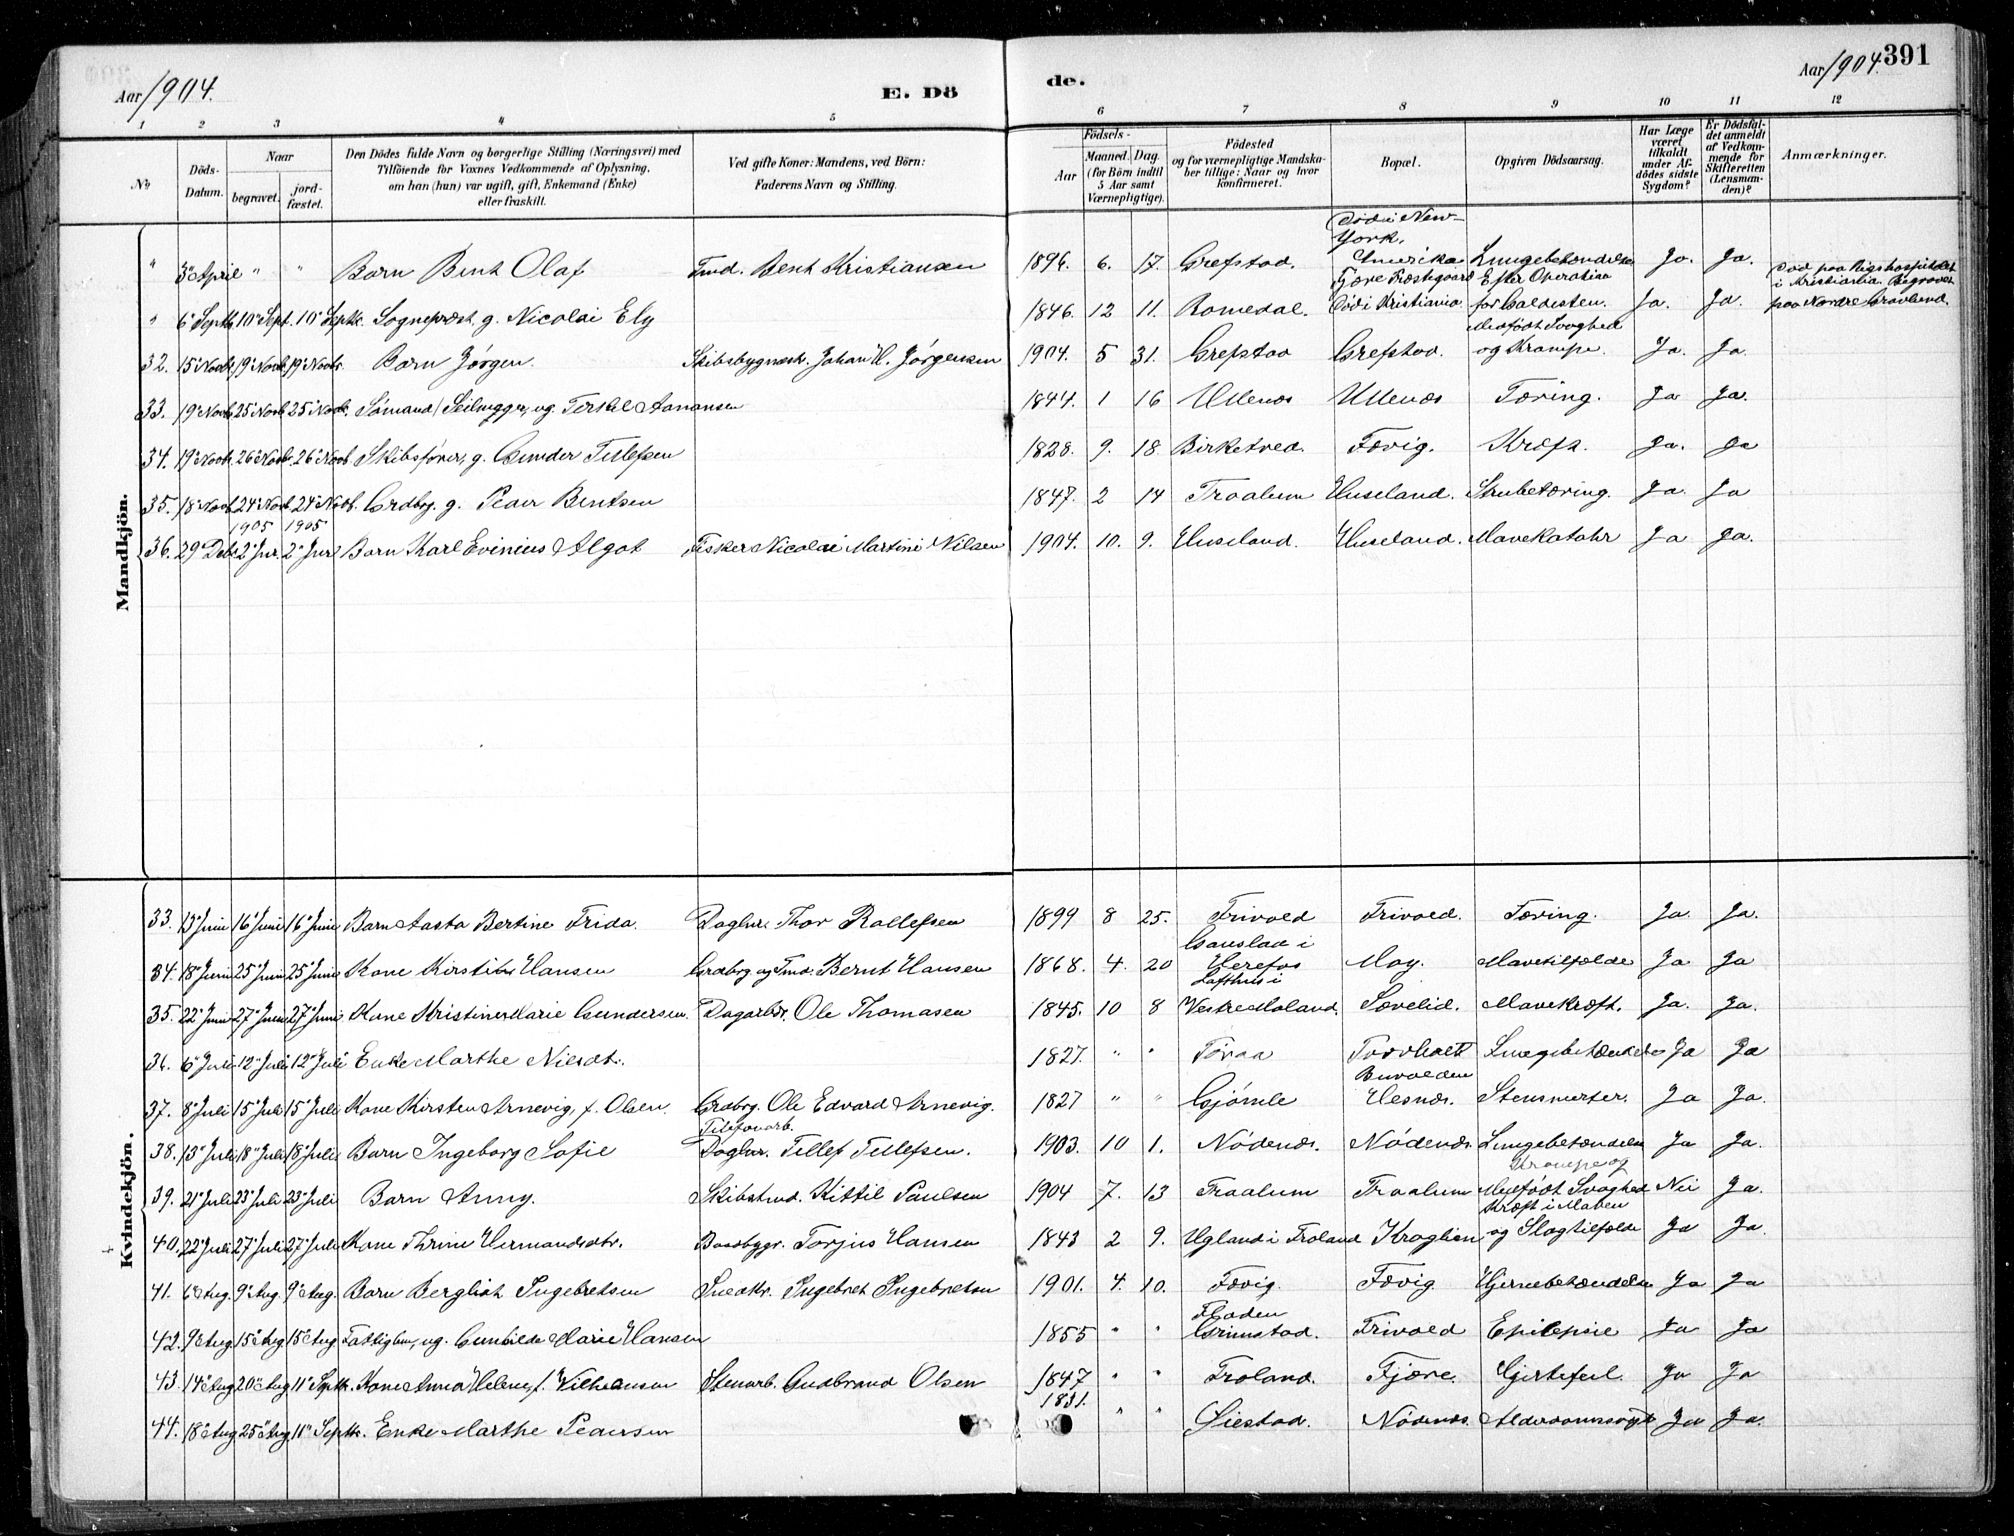 Aar 1904.
E. Dö
de.
Aar 1904. 391
1 2 3 4 5 6 7 8 9 10 11 12
No
Döds-Datum.
Naar
begravet.
jord-fæstet.
Den Dödes fulde Navn og borgerlige Stilling (Næringsvei) med
Tilföiende for Voxnes Vedkommende af Oplysning,
om han (hun) var ugift, gift, Enkemand (Enke)
eller fraskilt.
Ved gifte Koner: Mandens, ved Börn:
Faderens Navn og Stilling.
Födsels-
Aar
Maaned. Dag.
(for Börn indtil
5 Aar samt
Værnepligtige).
Födested
og for værnepligtige Mandska-
ber tillige: Naar og hvor
konfirmeret.
Bopæl.
Opgiven Dödsaarsag.
Har Læge
været
tilkaldt
under Af-
dödes sidste
Sygdom?
Er Dödsfal-
det anmeldt
af Vedkom-
mende for
Skifteretten
(Lensman-
den)?
Anmærkninger.
Mandkjön.
Död i New-
York.
" 3 April " " Barn Bent Olaf Tmd. Bent Kristiansen 1896. 6. 17. Grefstad. Amerika Lungebetændelse Ja. Ja.
Fjære Præstegaard Efter Operation Død paa Rigshospitalet
i Kristiania. Begravet
" 6 Septb. 10 Sept. 10 Septb. Sognepræst, g. Nicolai Ely 1846. 12 11. Romedal. Död i Kristiania for Galdesten. Ja. Ja. paa Nordre Gravlund.
Medfödt Svaghed
32. 15 Novb. 19 Novb. 19 Novbr. Barn Jörgen. Skibsbygmest. Johan H. Jörgensen 1904. 5 31. Grefstad Grefstad. og Krampe. Ja. Ja.
33. 19 Novb. 25 Novb. 25 Novb. Sömand/Seilmager, ug. Terkel Aanonsen 1844. 1 16 Ullenæs Ullenæs Tæring. Ja Ja.
34. 19 Novb. 26 Novb. 26 Novb. Skibsförer, g. Gunder Tellefsen 1828. 9. 18 Birketved. Fævig. Kræft. Ja. Ja
35. 18 Novb. 24 Novb. 24 Novb. Grdbrg. g. Peder Bentsen 1847. 2 14 Traalum Huseland. Strubetæring. Ja. Ja
1905 1905
36. 29 Deb. 2 Jnr. 2 Jnr. Barn Karl Evinius Algot Fisker Nicolai Martini Nilsen 1904. 10. 9. Huseland. Huseland. Mavekatahr Ja Ja.
Kvindekjön.
33. 13 Juni 16 Juni 16 Juni Barn Aasta Bertine Frida. Daglnr. Thor Rollefsen 1899 8 25. Frivold Frivold. Tæring. Ja. Ja.
Gauslad i
34. 18 Juni 25 Juni 25 Juni Kone Kirstine Hansen Grdbrg og Tmd. Bernt Hansen 1868. 4. 20 Herefos Moy. Mavetilfælde Ja Ja
Lofthus i
35. 22 Juni 27 Juni 27 Juni Kone Kristine Marie Gundersen. Dagarbdr. Ole Thomasen 1845. 10 8 Vestre Moland. Sævelid. Mavekræft. Ja. Ja.
36. 6 Juli 12 Juli 12 Juli Enke Marthe Nilsdtr. 1827. " " Töraa Lungebetændelse Ja Ja
37. 8 Juli 15 Juli 15 Juli Kone Kirsten Arnevig, f. Olsen. Grdbrg. Ole Edvard Arnevig. 1827 " " Gjömle Hesnæs. Stensmerter. Ja Ja.
Telefonarb.
38. 13 Juli 18 Juli 18 Juli Barn Ingeborg Sofie Daglnr. Tellef Tellefsen. 1903. 10 1. Nödenæs. Nödenæs. Lungebetændelse Ja Ja.
Krampe og
39. 21 Juli 23 Juli 23 Juli Barn Anny. Skibstmd. Kittil Paulsen 1904 7. 13 Traalum Traalum Medfödt Svaghed Nei Ja.
Kræft i Maven
40. 22 Juli 27 Juli 27 Juli Kone Thrine Hermandsdtr. Baadbygr. Torjus Hansen 1843 2 9. Ugland i Froland Kroglien og Slagtilfælde Ja Ja.
41. 6 Aug. 9 Aug. 9 Aug. Barn Bergliot Ingebretsen Snedkr. Ingebret Ingebretsen 1901. 4. 10. Fævig. Fævig. Hjernebetændelse Ja Ja
Floden
42. 9 Aug. 15 Aug. 15 Aug. Fattiglem, ug. Gunhilde Marie Hansen 1855 " " Grimstad. Frivold Epilepsie Ja Ja
43. 14 Aug. 20 Aug. 11 Septb. Kone Anna Helene, f. Vilhelmsen Stenarb. Gudbrand Olsen 1847 " " Froland. Fjære. Hjertefeil. Ja Ja
44. 18 Aug. 25 Aug. 11 Septb. Enke Marthe Pedersen 1831. " " Öiestad. Nödenæs. Alderdomssvagh. Ja Ja.